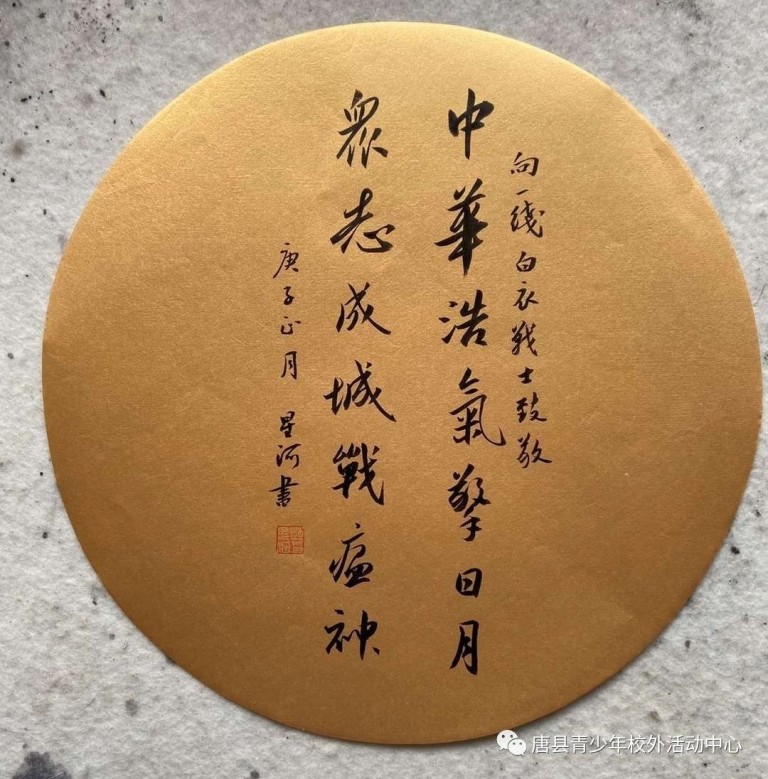 向一线白衣戰士致敬
中華浩氣擎日月
眾志成城戰瘟神
庚子正月 星河書
唐县青少年校外活动中心